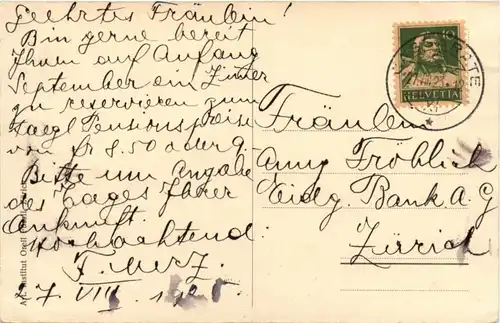 Geehrtes Fräulein!
Bin gerne bereit
Ihnen auf Anfang
September ein Zimer
zu reservieren zum
taegl Pensionspreise
von fr 8.50
Bitte um Angabe
des Tages Ihrer
Ankunft.
Hochachtend
F. Merz.
7 VIII 192
10
HELVETIA
Fräulein
Anny Fröhlich
Eidg. Bank A.G
Zürich
Institut Orell